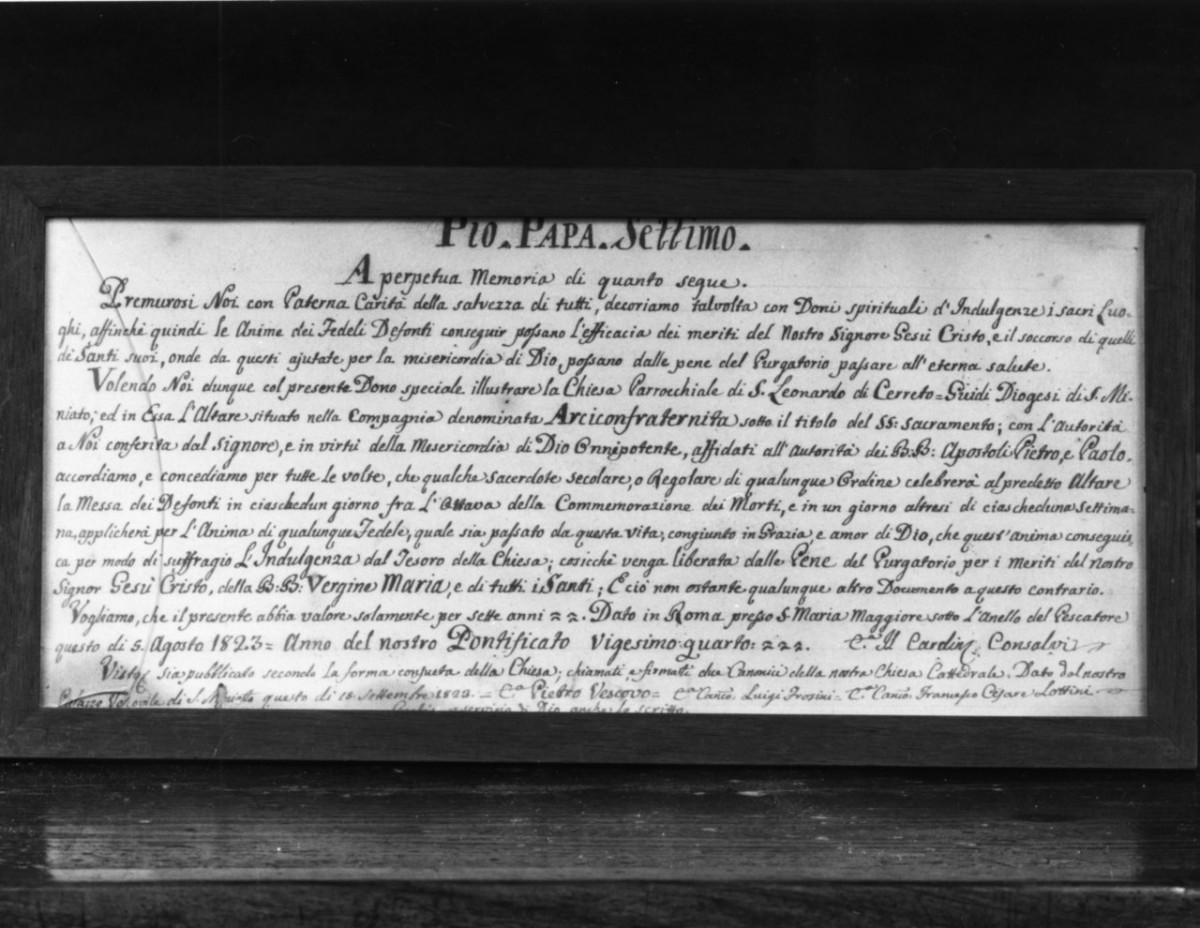 Pio. Papa. Settimo.
A perpetua Memoria di quanto segue.
Premurosi Noi con Paterna Carità della salvezza di tutti, decoriamo talvolta con Doni spirituali d'Indulgenze i sacri Luo-
ghi, affinché quindi le Anime dei Fedeli Defonti conseguir possano l'efficacia dei meriti del Nostro Signore Gesù Cristo, e il soccorso di quelli
de' Santi suoi, onde da questi ajutate per la misericordia di Dio, possano dalle pene del Purgatorio passare all'eterna salute.
Volendo Noi dunque col presente Dono speciale illustrare la Chiesa Parrocchiale di S. Leonardo di Cerreto=Guidi Diogesi di S. Mi-
niato; ed in Essa L'Altare situato nella Compagnia denominata Arciconfraternita sotto il titolo del SS: Sacramento; con L'Autorità
a Noi conferita dal Signore, e in virtù della Misericordia di Dio Onnipotente, affidati all'autorità dei B.B: Apostoli Pietro, e Paolo.
accordiamo, e concediamo per tutte le volte, che qualche sacerdote secolare, o Regolare di qualunque Ordine celebrerà al predetto Altare
la Messa dei Defonti in ciaschedun giorno fra L'Ottava della Commemorazione dei Morti, e in un giorno altresi di ciascheduna Settima=
na, applicherà per L'Anima di qualunque Fedele, quale sia passato da questa vita, congiunto in Grazia, e amor di Dio, che quest'anima consegui=
ca per modo di suffragio L'Indulgenza dal Tesoro della Chiesa; cosicchè venga liberata dalle Pene del Purgatorio per i meriti del nostro
Signor Gesù Cristo, della B:B: Vergine Maria, e di tutti i Santi; E ciò non ostante qualunque altro Documento a questo contrario.
Vogliamo, che il presente abbia valore solamente per sette anni == . Dato in Roma presso S. Maria Maggiore sotto L'Anello del Pescatore
questo dì 5. Agosto 1823= Anno del nostro Pontificato Vigesimo quarto: ===. C.º Il Cardin. Consalvi
Visto, sia pubblicato secondo la forma consueta della Chiesa; chiamati, e firmati due Canonici della nostra Chiesa Cattedrale. Dato dal nostro
Palazzo di S. Miniato questo dì 18. Settembre 1823. = C.º Pietro Vescovo= C.º Canco. Luigi Frosini= C.º Canco. Francesco Cesare Lottini
a servizio di Dio anche lo scritto.